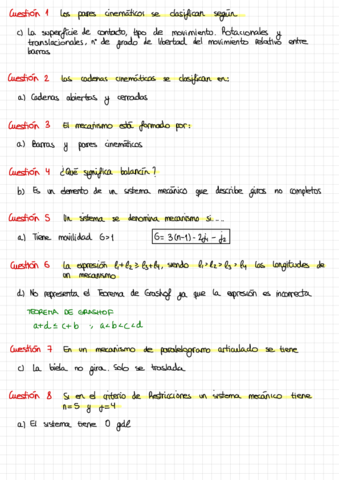 Cuestión 1 Los pares cinemáticos se clasifican según
c) La superficie de contacto, tipo de movimiento. Rotacionales y
translacionales, nº de grado de libertad del movimiento relativo entre
barras.
Cuestión 2 Las cadenas cinemáticas se clasifican en:
a) Cadenas abiertas y cerradas
Cuestión 3 El mecanismo está formado por:
a) Barras y pares cinemáticos
Cuestión 4 ¿Qué significa balancín?
b) Es un elemento de un sistema mecánico que describe giros no completos
Cuestión 5 Un sistema se denomina mecanismo si...
a) Tiene movilidad G>1 G= 3(n-1) - 2j₁ - j₂
Cuestión 6 La expresión l₁+l₂ ≥ l₃+l₄, siendo l₁>l₂>l₃>l₄ las longitudes de
un mecanismo
d) No representa el Teorema de Grashof ya que la expresión es incorrecta.
TEOREMA DE GRASHOF
a+d ≤ c+b , a<b<c<d
Cuestión 7 En un mecanismo de paralelogramo articulado se tiene
c) La biela no gira. Solo se traslada
Cuestión 8 Si en el criterio de Restricciones un sistema mecánico tiene
n=5 y j=4
a) El sistema tiene 0 gdl